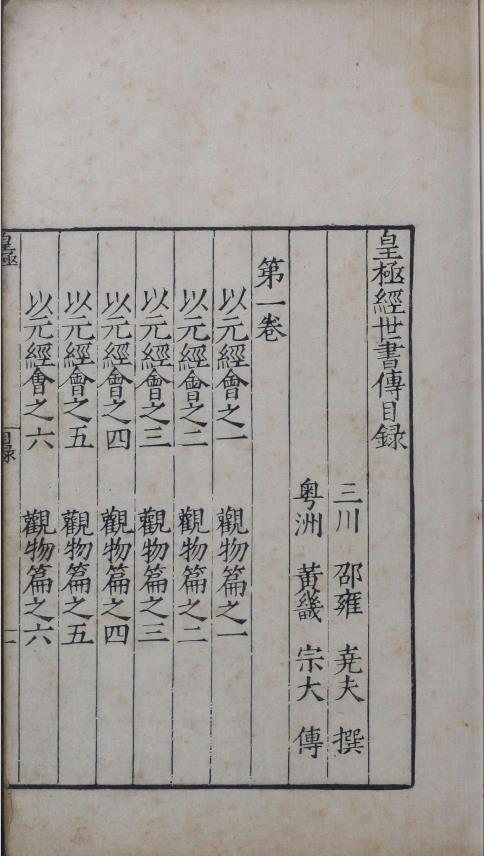 皇極經世書傳目録
三川 邵雍 尭夫 撰
粤洲 黃畿 宗大 傳
第一卷
以元經會之一 觀物篇之一
以元經會之二 觀物篇之二
以元經會之三 觀物篇之三
以元經會之四 觀物篇之四
以元經會之五 觀物篇之五
以元經會之六 觀物篇之六
皇極 目録 一